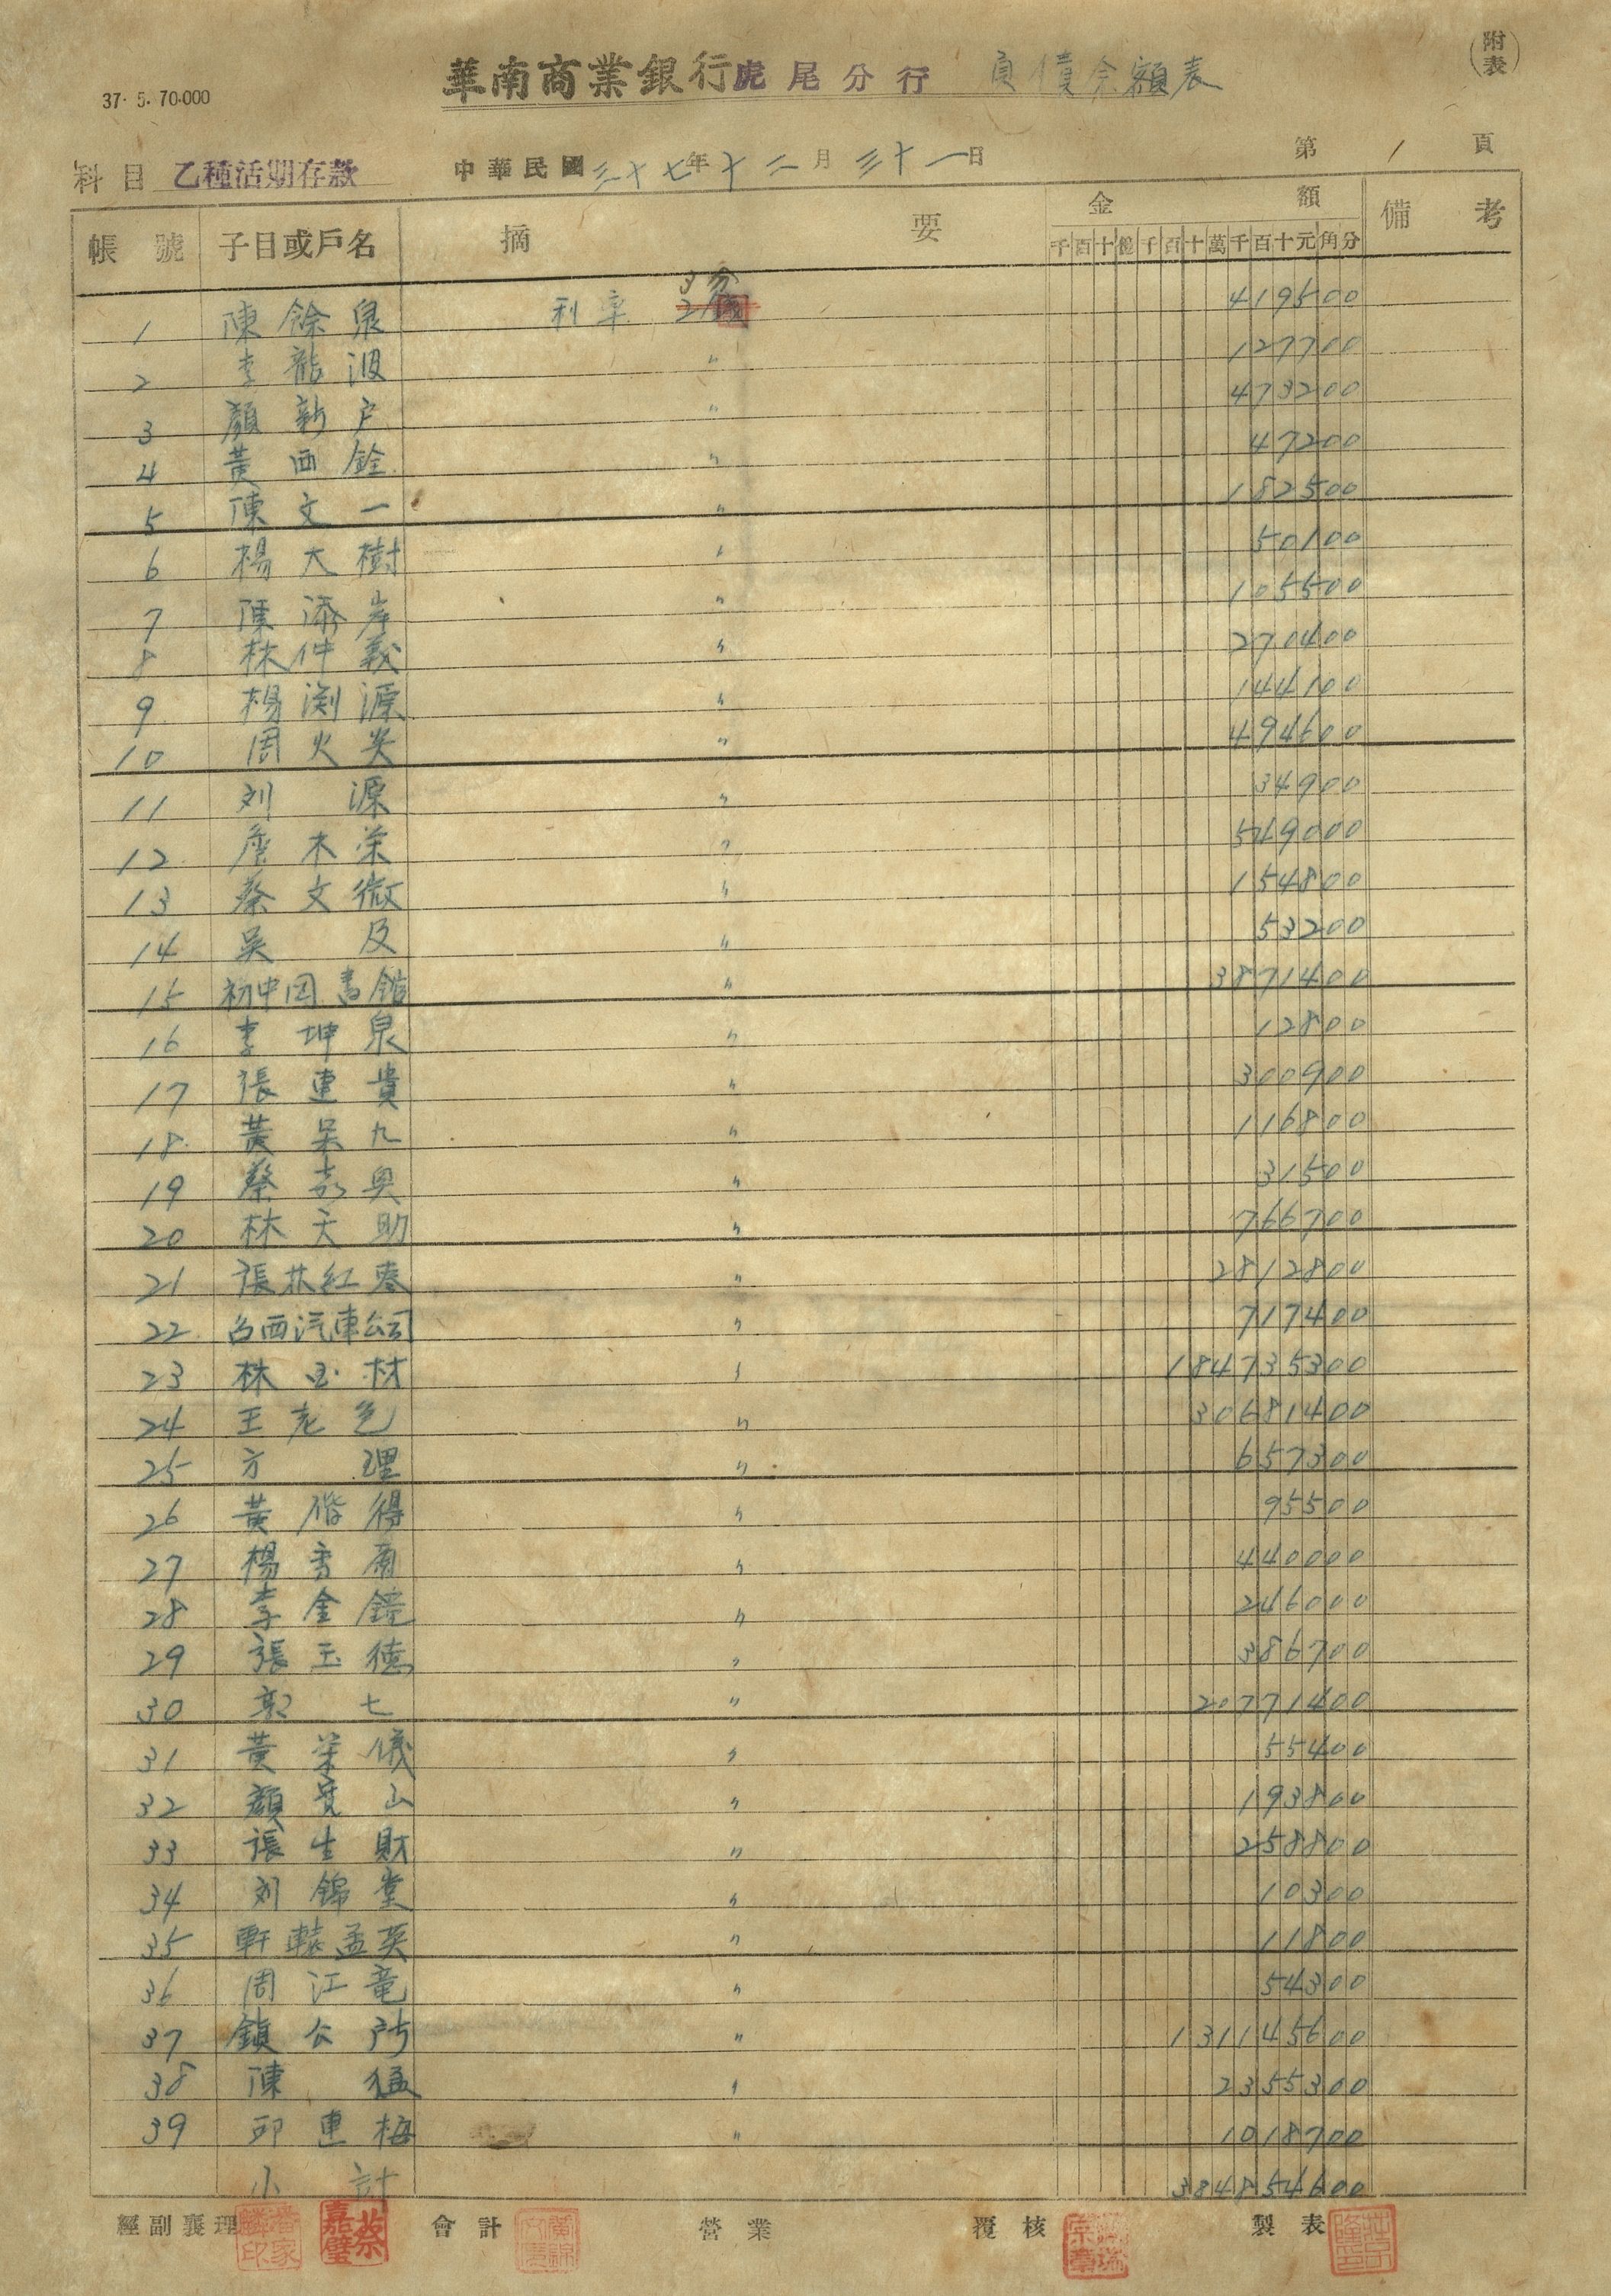 (附表)
37. 5. 70.000
華南商業銀行虎尾分行 負債余額表
科目 乙種活期存款 中華民國三十七年十二月三十一日 第1頁
帳號 子目或戶名 摘要 金額 備考
千百十億千百十萬千百十元角分
1 陳餘泉 利率 3分 419500
2 李龍波 〃 127700
3 顏新戶 〃 473200
4 黃西銓 〃 47200
5 陳文一 〃 182500
6 楊大樹 〃 50100
7 陳添岸 〃 105500
8 林仲義 〃 270400
9 楊渕源 〃 144100
10 周火炎 〃 494600
11 刘源 〃 34900
12 詹木荣 〃 549000
13 蔡文微 〃 154800
14 吳及 〃 53200
15 初中図書舘 〃 3871400
16 李坤泉 〃 12800
17 張連貴 〃 300900
18 黃呆九 〃 116800
19 蔡嘉奥 〃 31500
20 林天助 〃 766700
21 張林紅棗 〃 2812800
22 台西汽車公司 〃 717400
23 林玉材 〃 184735300
24 王老乞 〃 30681400
25 方理 〃 657300
26 黃階得 〃 95500
27 楊秀蘭 〃 440000
28 李金鐘 〃 246000
29 張玉德 〃 386700
30 郭七 〃 20771400
31 黃荣儀 〃 55400
32 顏覓山 〃 193800
33 張生財 〃 258800
34 刘錦堂 〃 10300
35 軒轅孟英 〃 11800
36 周江竜 〃 54300
37 鎮公所 〃 131145600
38 陳猛 〃 2355300
39 邱連梅 〃 1018700
小計 384854600
經副襄理 蔡嘉璧 會計 營業 覆核 製表